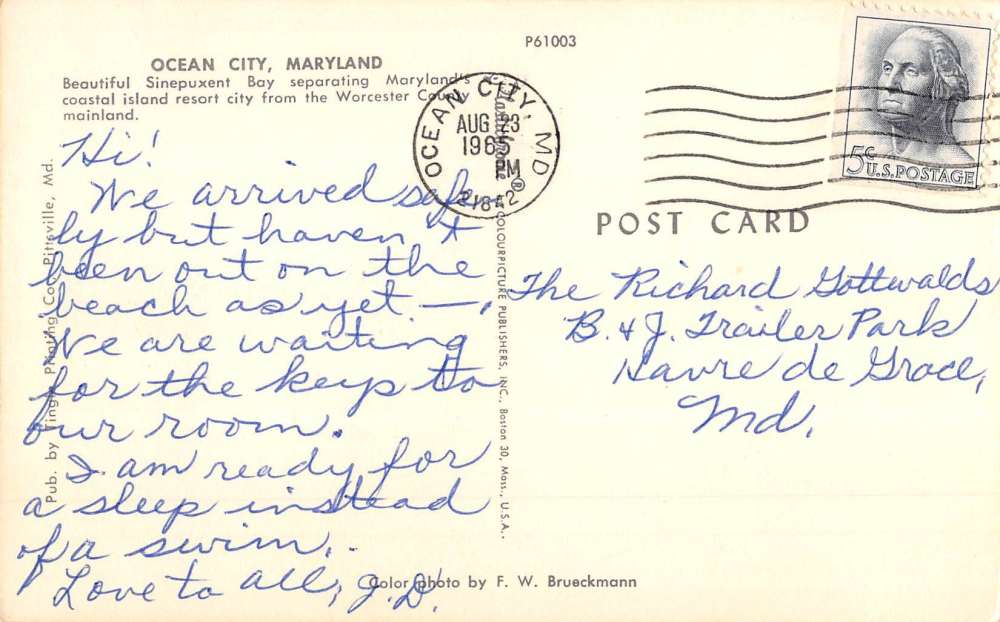 P61003
OCEAN CITY, MARYLAND
Beautiful Sinepuxent Bay separating Maryland's
coastal island resort city from the Worcester County
mainland.
OCEAN CITY, MD
AUG 23
1965
PM
21842
5c
U.S. POSTAGE
POST CARD
Hi!
We arrived safe
ly but haven't
been out on the
beach as yet —,
We are waiting
for the keys to
our room.
I am ready for
a sleep instead
of a swim.
Love to all, J.D.
The Richard Gottwalds
B. & J. Trailer Park
Havre de Grace,
Md.
Pub. by Tingle Printing Co., Pittsville, Md.
COLOURPICTURE PUBLISHERS, INC., Boston 30, Mass., U.S.A.
Color photo by F. W. Brueckmann